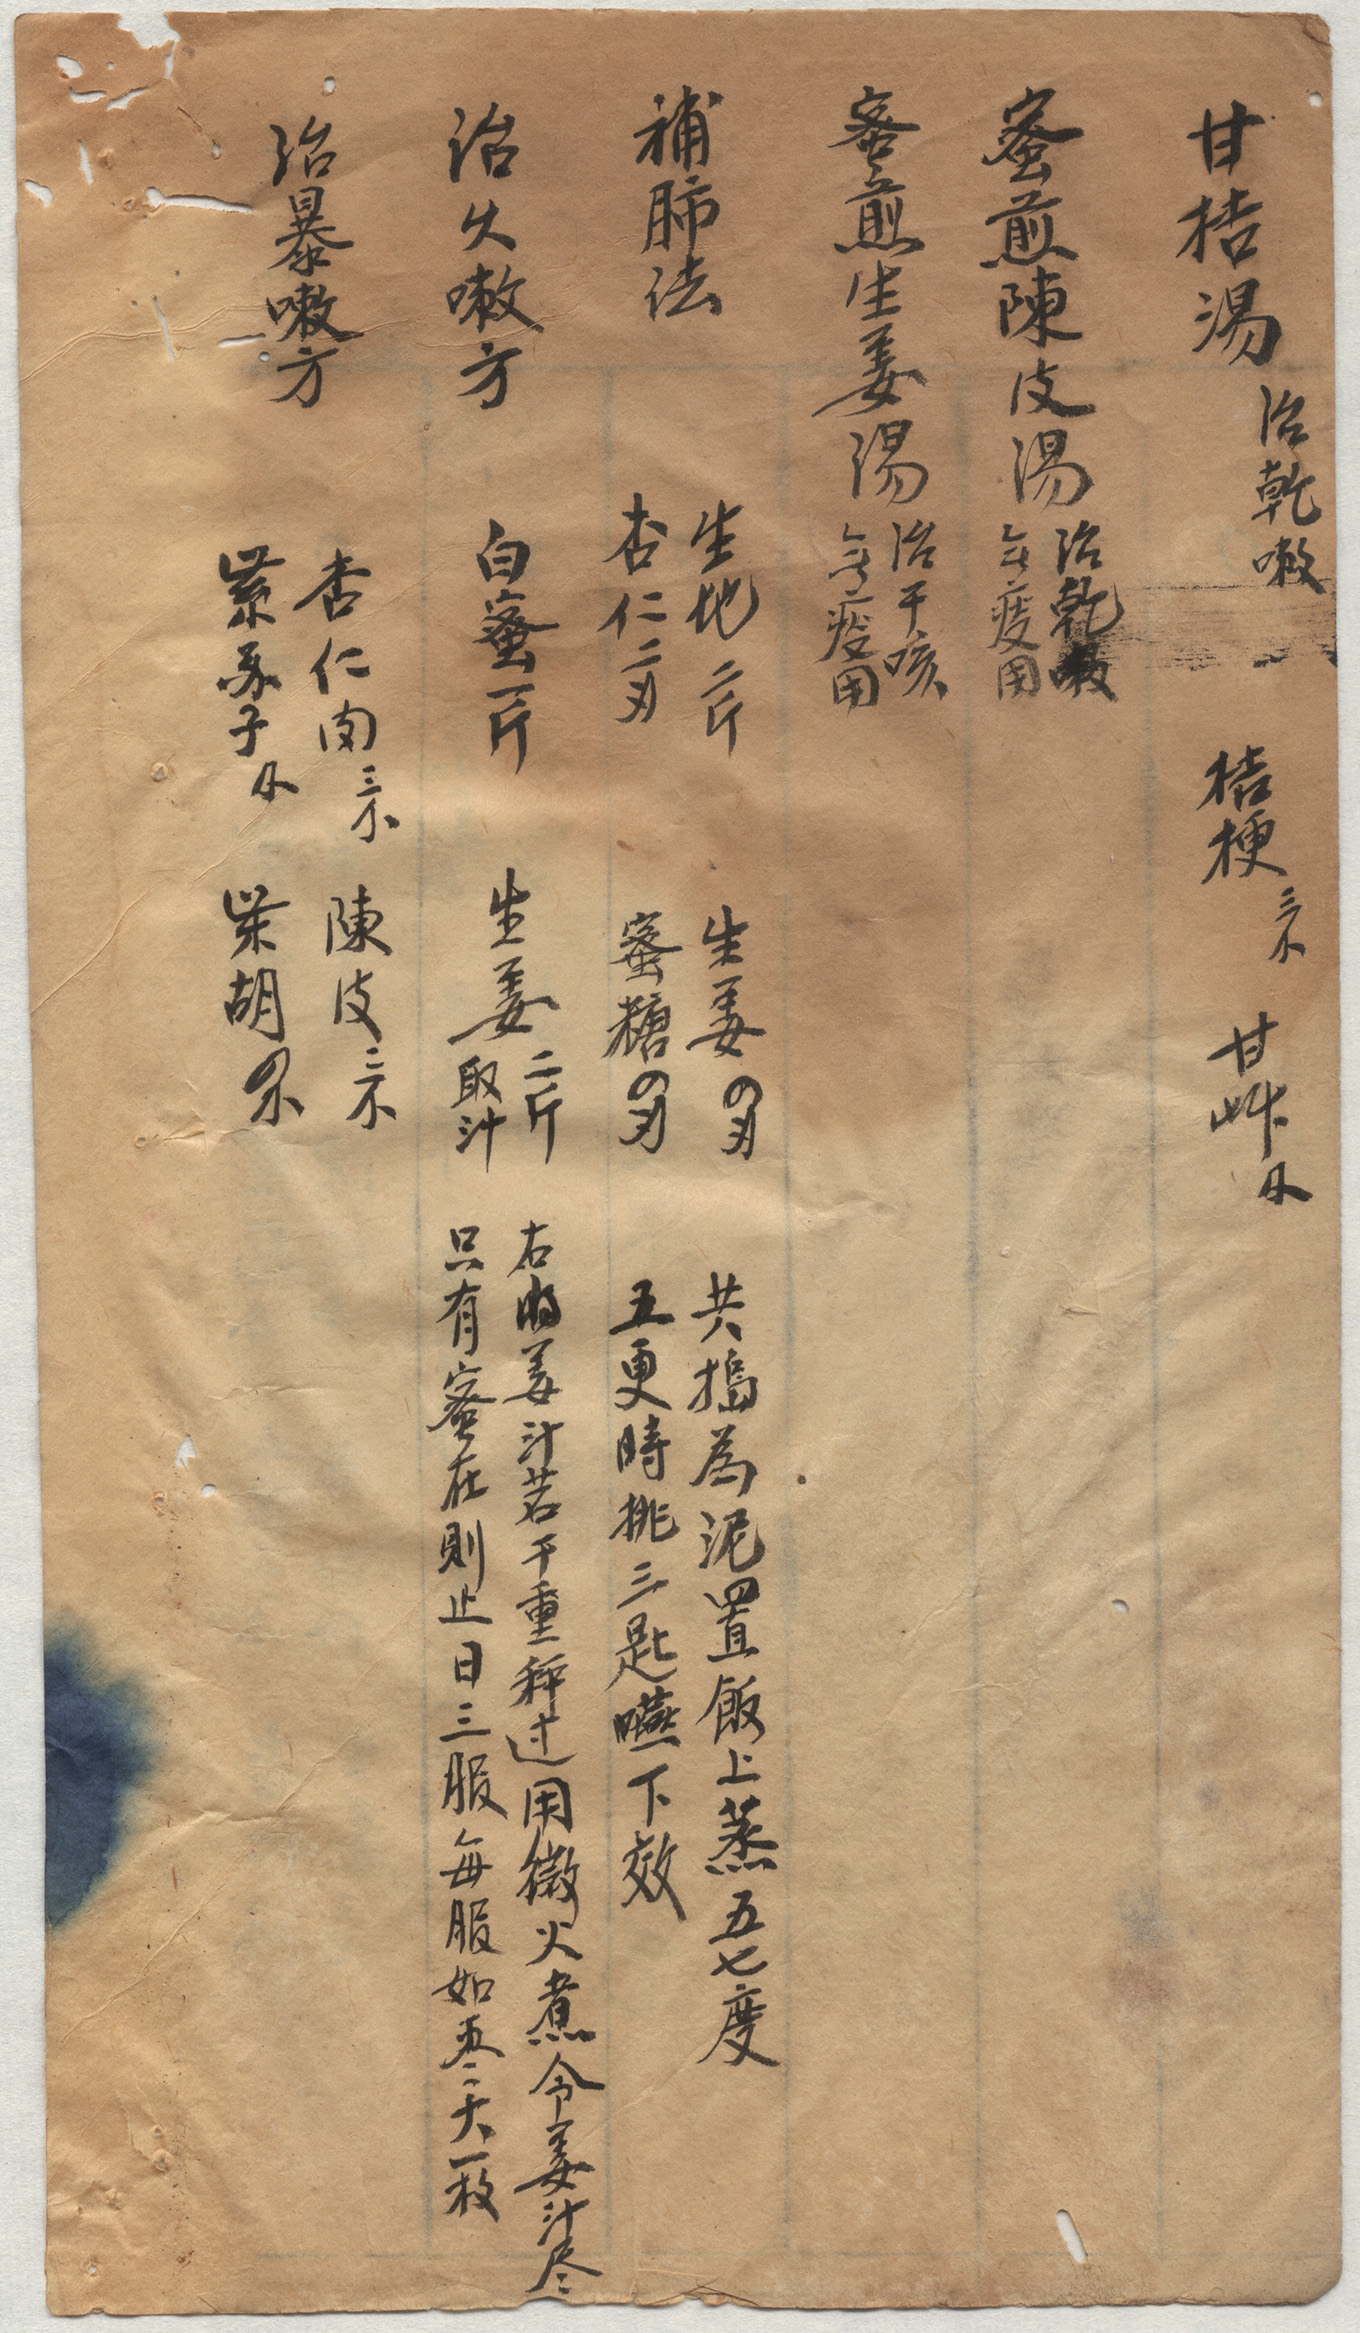 甘桔湯
治乾嗽
桔梗三不 甘艸
蜜煎陳皮湯
治乾嗽
無痰用
蜜煎生姜湯
治干咳
無痰用
補肺法
生地二斤 生姜四刄 共搗為泥置飯上蒸五七度
杏仁二刄 蜜糖四刄 五更時挑三匙嚥下效
治久嗽方
白蜜一斤 生姜二斤取汁
右將姜汁若干重秤过用微火煮令姜汁尽
只有蜜在則止日三服每服如枣大一枚
治暴嗽方
杏仁肉三不 陳皮三不
紫苏子 柴胡